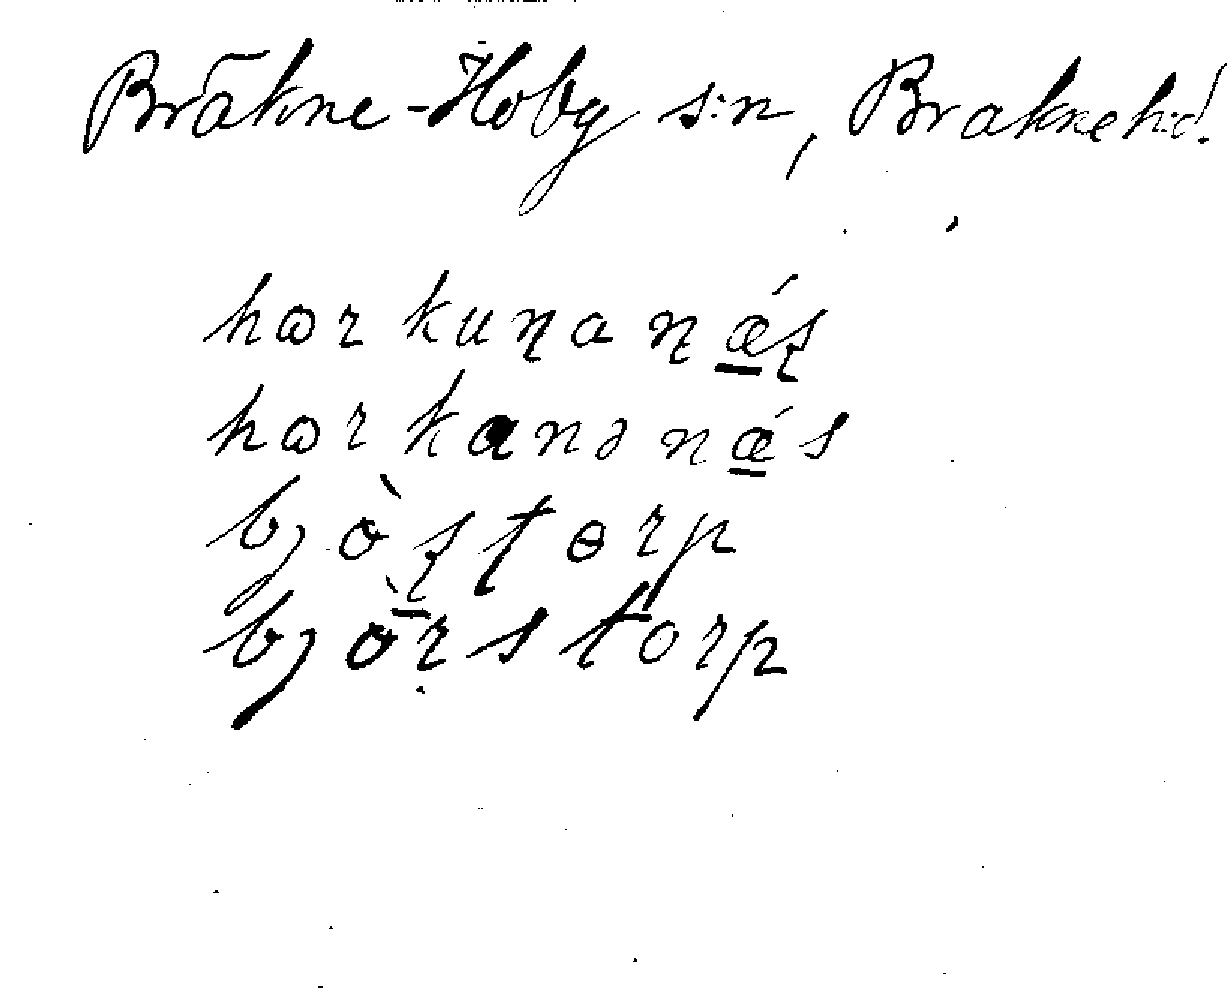 Bräkne-Hoby s:n, Bräkne h:d.
harkuṇanǽʂ
harkanənǽs
bjòʂʈɵrp
bjòrstorp